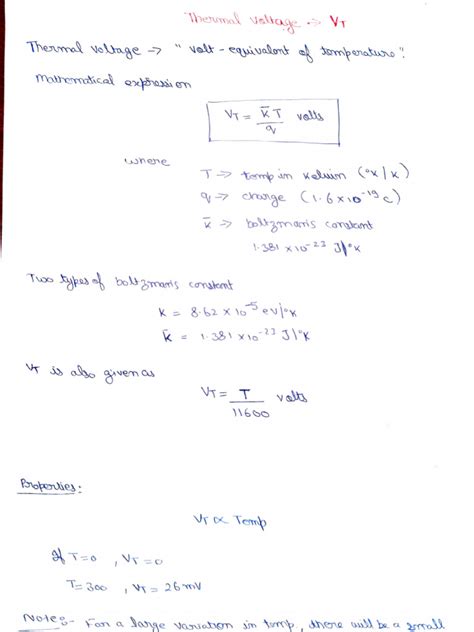 Thermal voltage → VT
Thermal voltage → "volt-equivalent of temperature".
Mathematical expression
VT = k̅ T / q volts
where
T → temp in kelvin (°K/K)
q → charge (1.6×10⁻¹⁹ C)
k̅ → boltzman's constant
1.381 × 10⁻²³ J/°K
Two types of boltzman's constant
K = 8.62 × 10⁻⁵ eV/°K
k̅ = 1.381 × 10⁻²³ J/°K
VT is also given as
VT = T / 11600 volts
Properties:
VT ∝ Temp
If T=0 , VT=0
T=300 , VT = 26mV
Notes:- For a large variation in temp, there will be a small